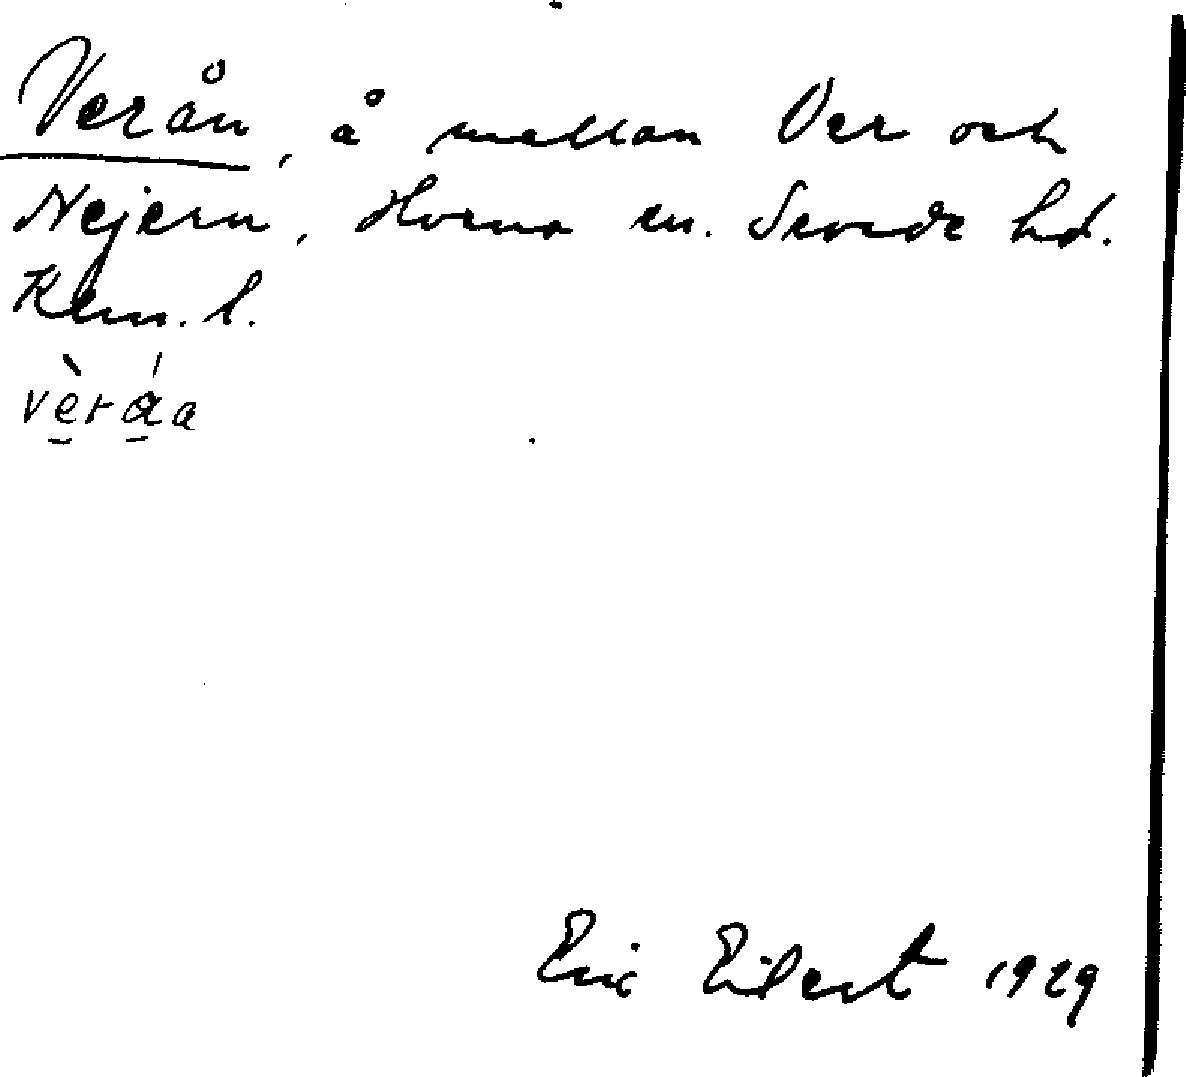 Verån, å mellan Ver och
Nejern, Horns sn. Sevede hd.
Kalm. l.
vèráa
Eric Eilert 1929